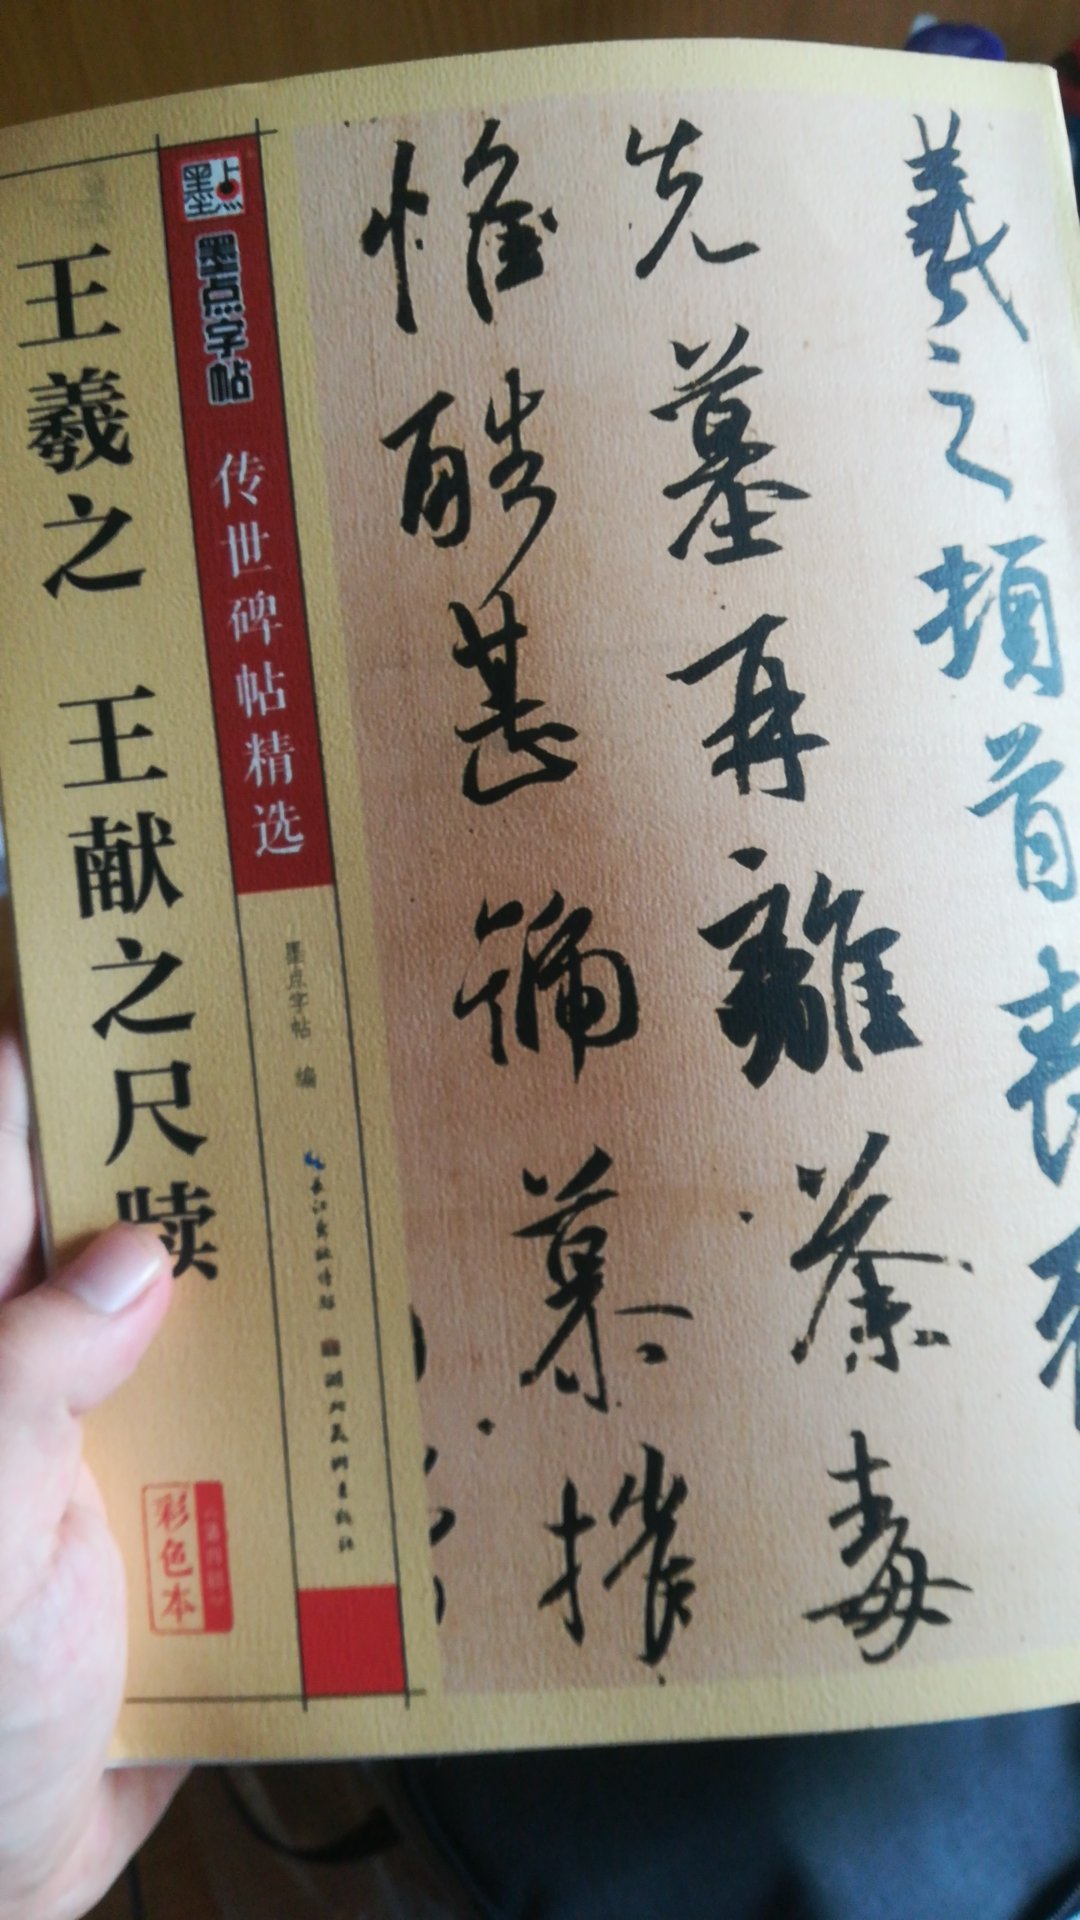 羲之頓首喪
先墓再離荼毒
惟酷甚號慕摧
墨点
墨点字帖
传世碑帖精选
王羲之 王献之尺牍
墨点字帖 编
长江出版传媒
湖北美术出版社
彩色本